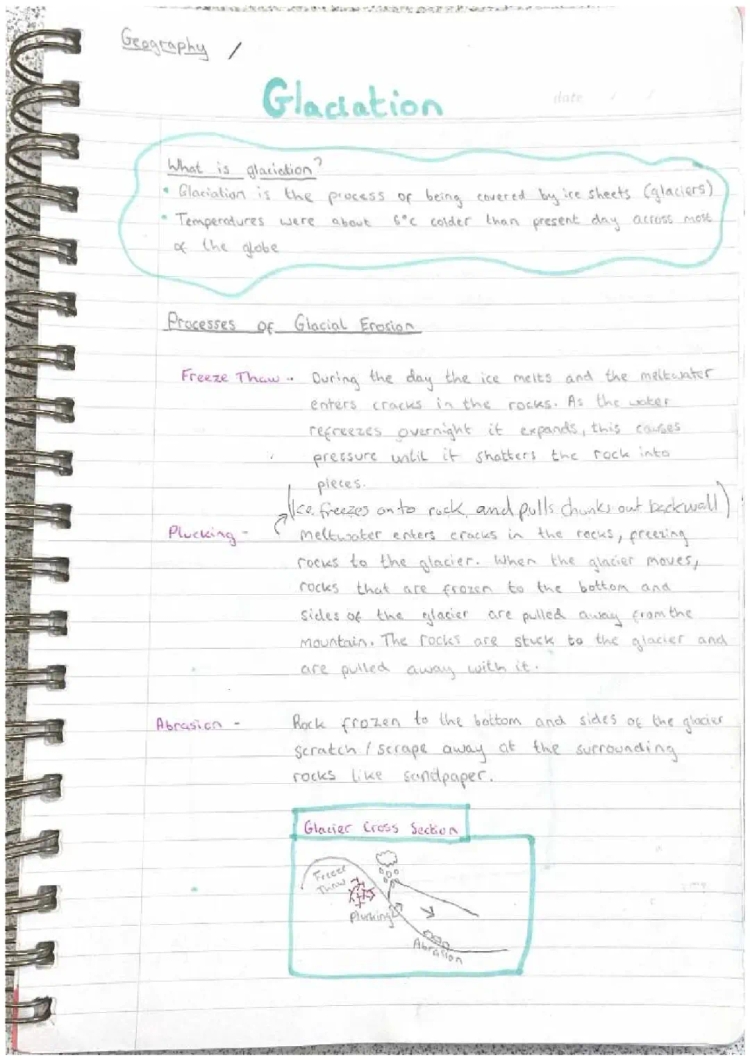 Geography /
Glaciation
date / /
What is glaciation?
• Glaciation is the process of being covered by ice sheets (glaciers)
• Temperatures were about 6°c colder than present day across most
of the globe
Processes of Glacial Erosion
Freeze Thaw - During the day the ice melts and the meltwater
enters cracks in the rocks. As the water
refreezes overnight it expands, this causes
pressure until it shatters the rock into
pieces.
(Ice freezes onto rock, and pulls chunks out backwall)
Plucking - meltwater enters cracks in the rocks, freezing
rocks to the glacier. When the glacier moves,
rocks that are frozen to the bottom and
sides of the glacier are pulled away from the
mountain. The rocks are stuck to the glacier and
are pulled away with it.
Abrasion - Rock frozen to the bottom and sides of the glacier
scratch / scrape away at the surrounding
rocks like sandpaper.
Glacier Cross Section
Freeze
Thaw
Plucking
Abrasion